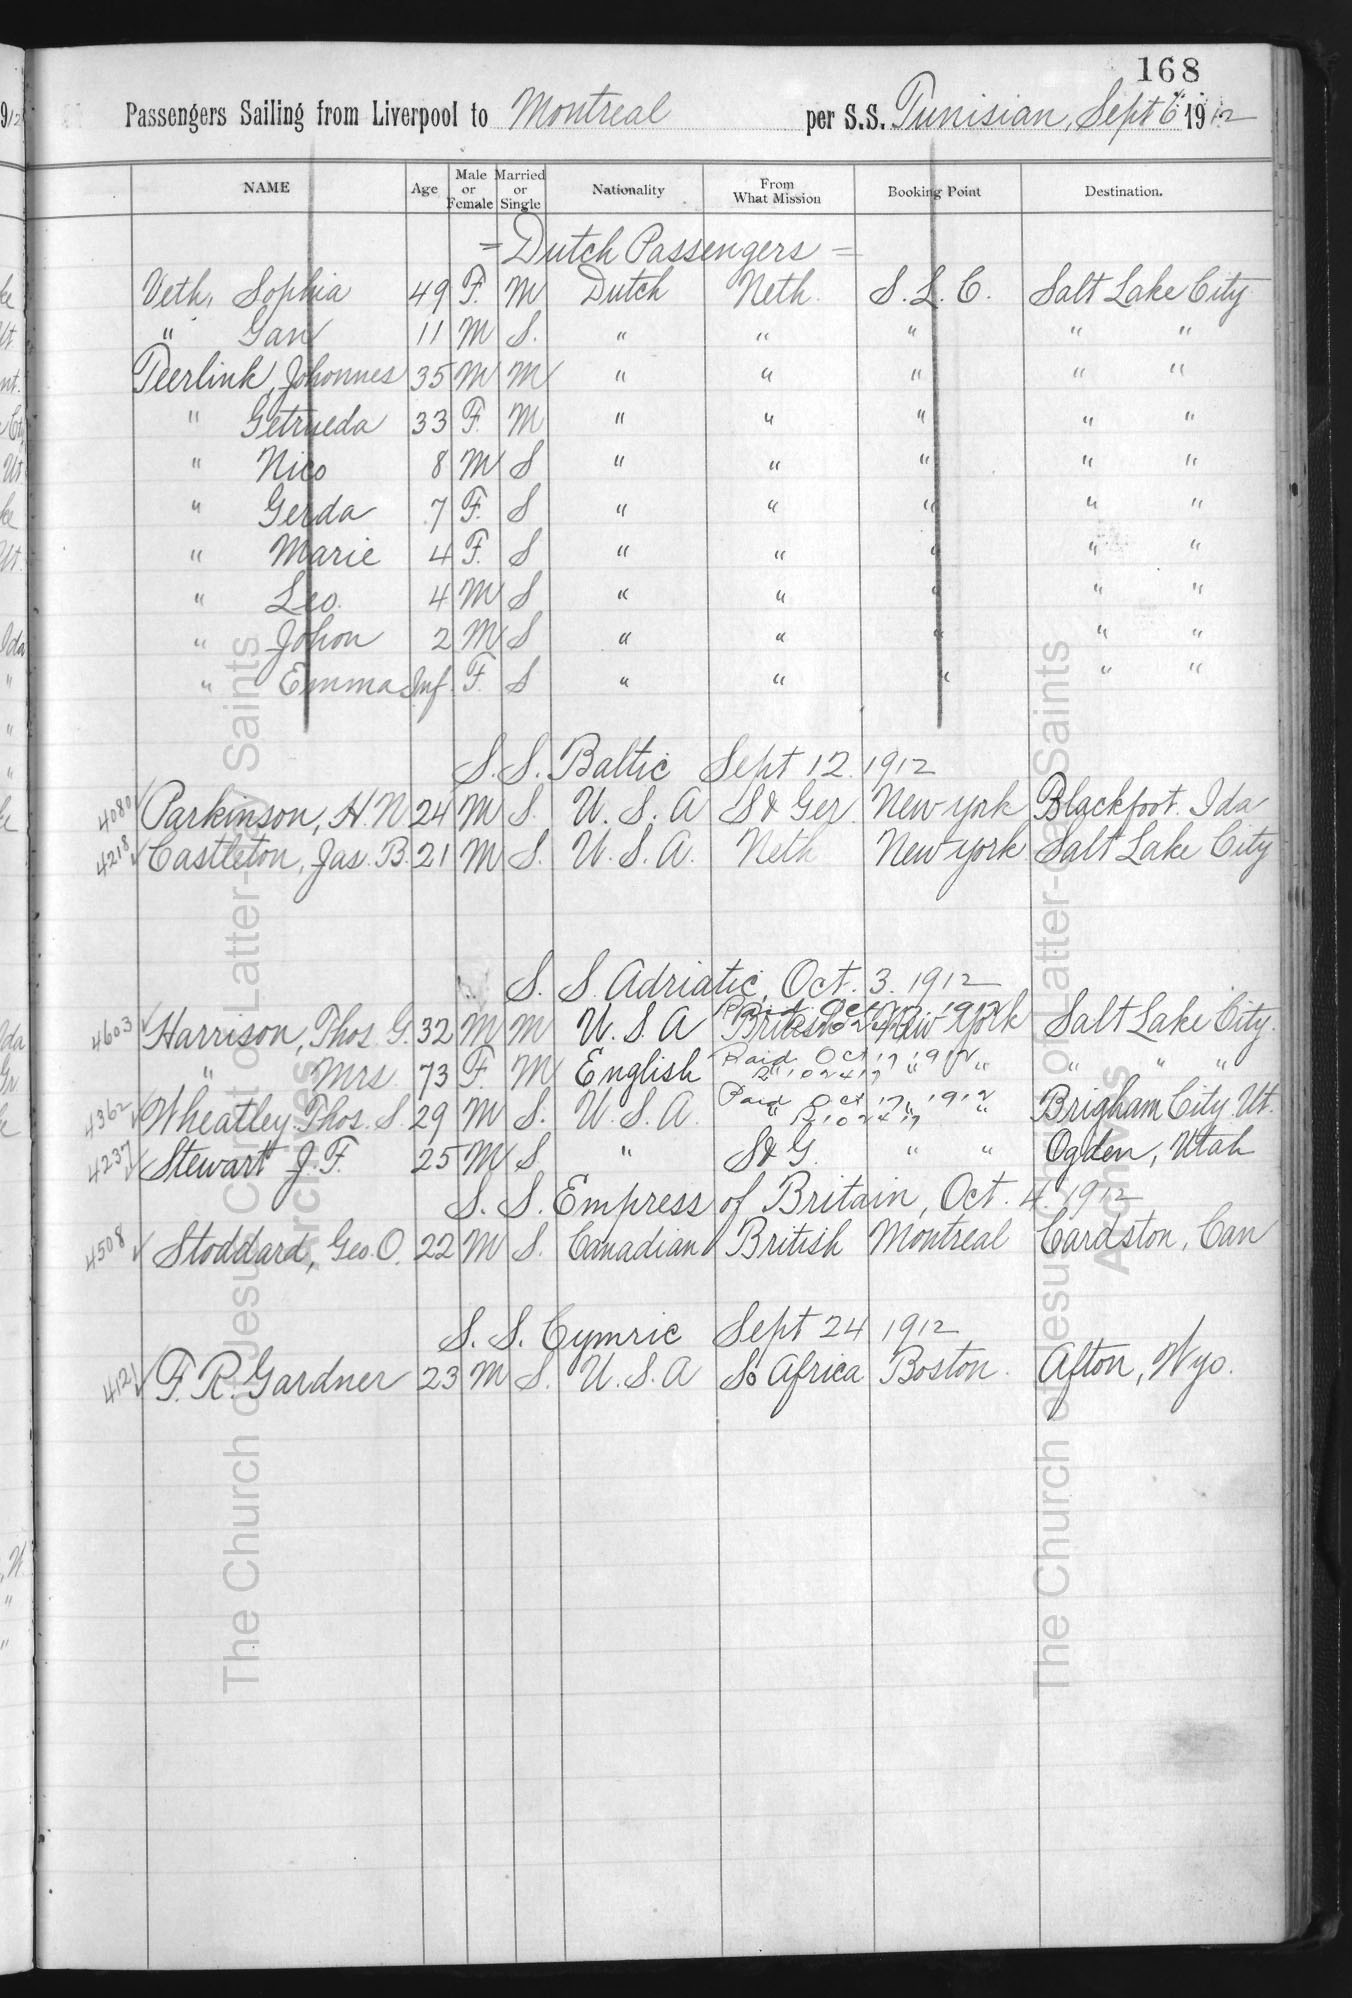 168
Passengers Sailing from Liverpool to Montreal per S.S. Tunisian, Sept 6" 1912
NAME Age Male or Female Married or Single Nationality From What Mission Booking Point Destination.
= Dutch Passengers =
Veth, Sophia 49 F. M Dutch Neth. S. L. C. Salt Lake City
" Gan 11 M S. " " " " "
Teerlink, Johonnes 35 M M " " " " "
" Getrueda 33 F. M " " " " "
" Nico 8 M S " " " " "
" Gerda 7 F. S " " " " "
" Marie 4 F. S " " " " "
" Leo. 4 M S " " " " "
" Johon 2 M S " " " " "
" Emma Inf. F. S " " " " "
S. S. Baltic Sept 12. 1912
4080 ✓ Parkinson, H. N. 24 M S. U. S. A S & Ger. New York Blackfoot. Ida
4218 ✓ Castleton, Jas. B. 21 M S. U. S. A. Neth New York Salt Lake City
S. S. Adriatic, Oct. 3. 1912
4603 ✓ Harrison, Thos. G. 32 M M U. S. A British New York Salt Lake City.
" Mrs. 73 F. M English Paid Oct 17 1912 " " " " "
4362 ✓ Wheatley Thos. S. 29 M S. U. S. A. Paid Oct 17, 1912 " " Brigham City Ut.
4237 ✓ Stewart J. F. 25 M S " S & G. " " Ogden, Utah
S. S. Empress of Britain, Oct. 4. 1912
4508 ✓ Stoddard, Geo. O. 22 M S. Canadian British Montreal Cardston, Can
S. S. Cymric Sept 24 1912
4121 ✓ F. R. Gardner 23 M S. U. S. A So Africa Boston. Afton, Wyo.
The Church of Jesus Christ of Latter-day Saints
Archives
The Church of Jesus Christ of Latter-day Saints
Archives